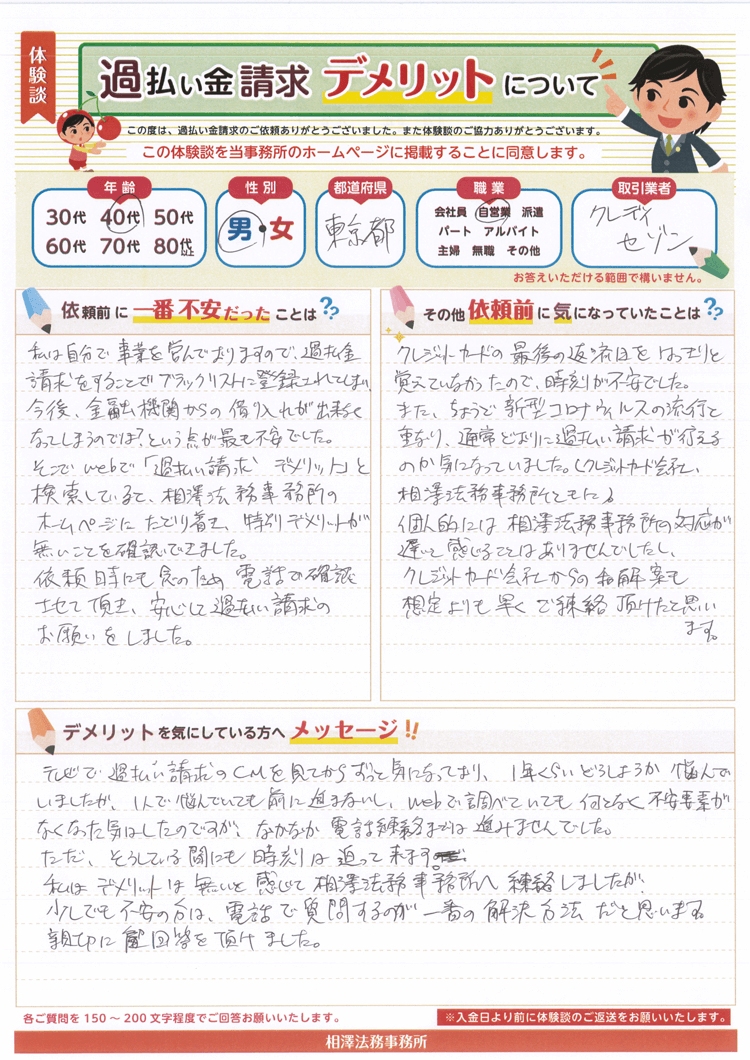 体験談
過払い金請求 デメリットについて
この度は、過払い金請求のご依頼ありがとうございました。また体験談のご協力ありがとうございます。
この体験談を当事務所のホームページに掲載することに同意します。
年齢 性別 都道府県 職業 取引業者
30代 40代 50代
60代 70代 80代以上
男・女
東京都
会社員 自営業 派遣
パート アルバイト
主婦 無職 その他
クレディ
セゾン
お答えいただける範囲で構いません。
依頼前に一番不安だったことは??
私は自分で事業を営んでおりますので、過払金
請求をすることでブラックリストに登録されてしまい
今後、金融機関からの借り入れが出来なく
なってしまうのでは?という点が最も不安でした。
そこでwebで「過払い請求 デメリット」と
検索していると、相澤法務事務所の
ホームページにたどり着き、特別デメリットが
無いことを確認できました。
依頼時にも念のため電話で確認
させて頂き、安心して過払い請求の
お願いをしました。
その他依頼前に気になっていたことは??
クレジットカードの最後の返済日をはっきりと
覚えていなかったので、時刻が不安でした。
また、ちょうど新型コロナウィルスの流行と
重なり、通常どおりに過払い請求が行える
のか気になっていました。(クレジットカード会社、
相澤法務事務所ともに)
個人的には相澤法務事務所の対応が
遅いと感じることはありませんでしたし、
クレジットカード会社からの和解案も
想定よりも早くご練絡頂けたと思い
ます。
デメリットを気にしている方へメッセージ!!
テレビで過払い請求のCMを見てからずっと気になっており、1年くらいどうしようか悩んで
いましたが、1人で悩んでいても前に進まないし、webで調べていても何となく不安要素が
なくなった気はしたのですが、なかなか電話練絡までは進みませんでした。
ただ、そうしている間にも時刻は迫って来ます。
私はデメリットは無いと感じて相澤法務事務所へ練絡しましたが、
少しでも不安の方は、電話で質問するのが一番の解決方法だと思います。
親切に回答を頂けました。
各ご質問を150～200文字程度でご回答お願いいたします。
※入金日より前に体験談のご返送をお願いいたします。
相澤法務事務所